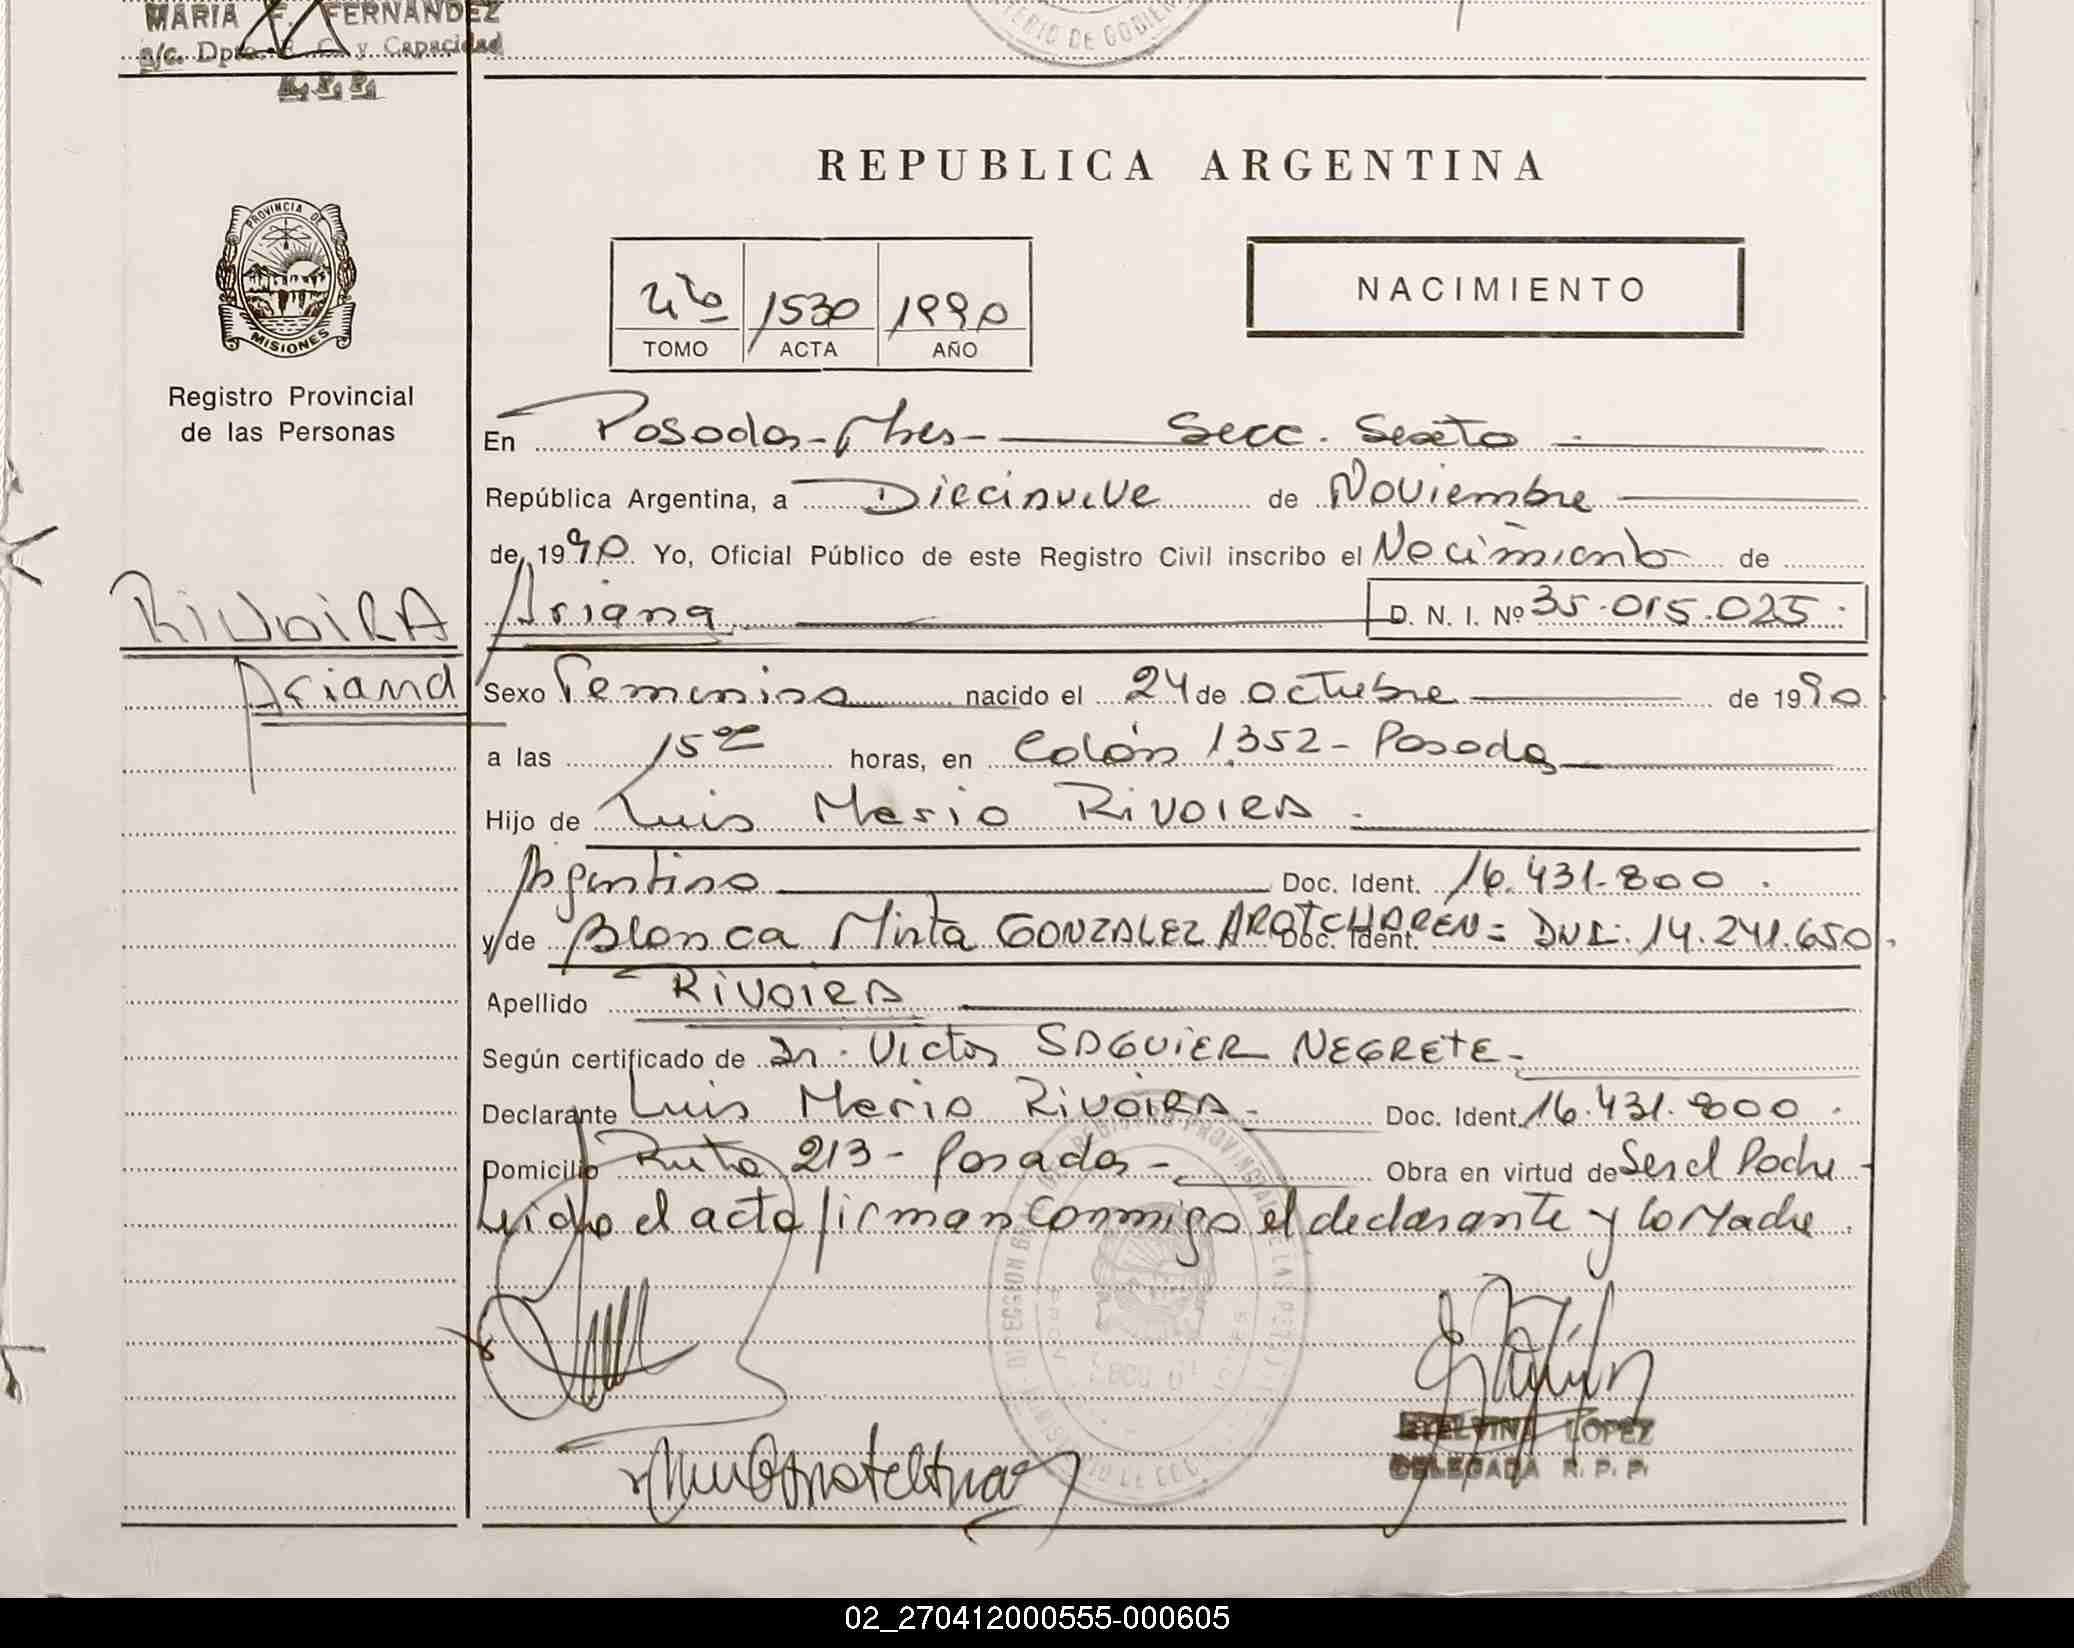 MARIA F. FERNANDEZ
a/c. Dpto. E. C. y Capacidad
R.P.P.
MINISTERIO DE GOBIERNO
REPUBLICA ARGENTINA
PROVINCIA DE
MISIONES
Registro Provincial
de las Personas
1530 1990
TOMO ACTA AÑO
NACIMIENTO
En Posadas-Mnes- Secc. Sexta
República Argentina, a Diecinueve de Noviembre
de 1990. Yo, Oficial Público de este Registro Civil inscribo el Nacimiento de
Ariana D. N. I. Nº 35.015.025.
RIVOIRA
Ariana
Sexo Femenino nacido el 24 de octubre de 1990
a las 15ºº horas, en Colón 1352- Posadas
Hijo de Luis Mario RIVOIRA.
Argentino Doc. Ident. 16.431.800.
y de Blanca Mirta GONZALEZ AROTCHAREN= Doc. Ident. DNI: 14.241.650.
Apellido RIVOIRA
Según certificado de Dr. Victor SAGUIER NEGRETE-
Declarante Luis Mario RIVOIRA- Doc. Ident. 16.431.800.
Domicilio Ruta 213- Posadas- Obra en virtud de Ser el Padre-
Leida el acta firman conmigo el declarante y la Madre.
ETELVINA LOPEZ
DELEGADA R. P. P.
02_270412000555-000605